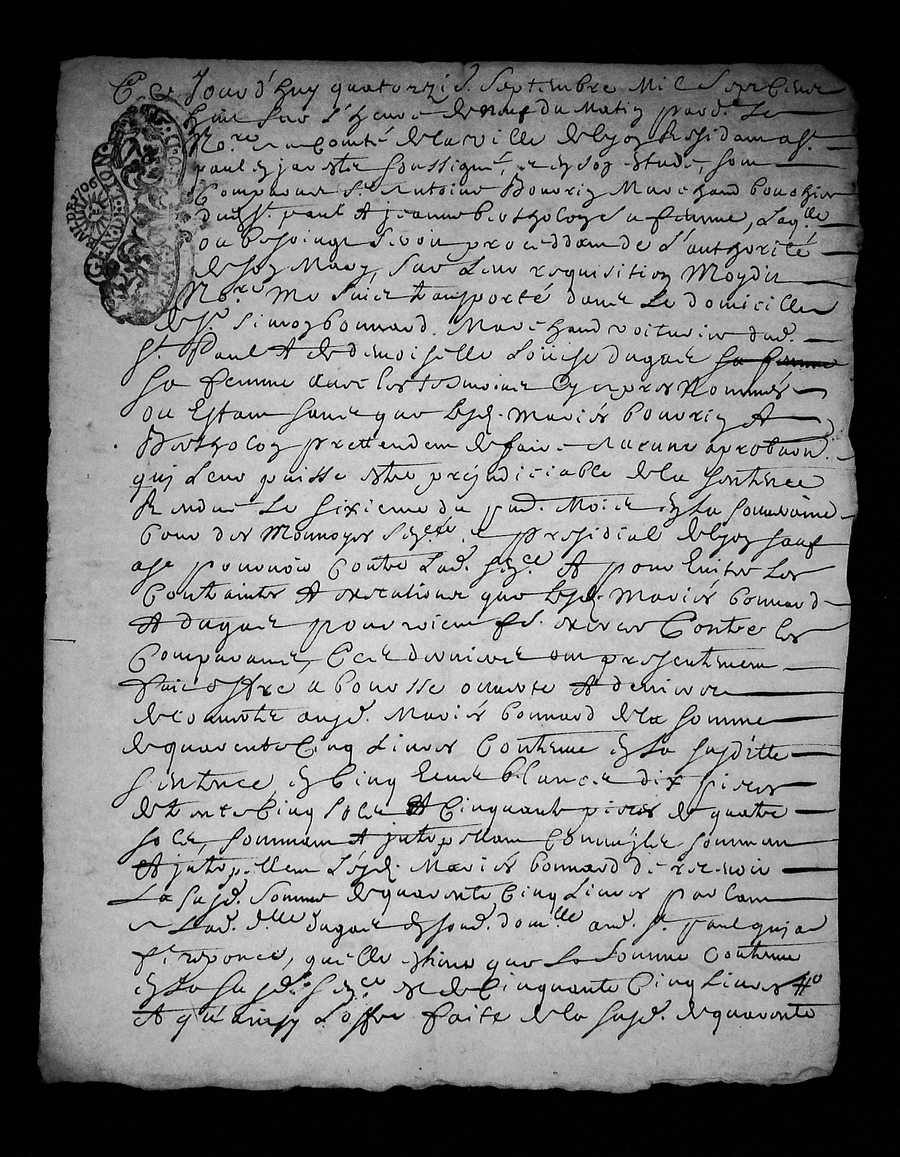 Ce Jourd'huy quatorzie. Septembre Mil Sept Cens
huit Sur L'heure de neuf du Matin pard. Le
No.re et a Comté de la ville de lyon Residant a St.
paul en jarestz soussigné, et en son estude, sont
Comparus Sr. Antoine Bouvrin Marchand bouchier
dud. St. paul et jeanne berthollon sa femme, Laq.lle
ou besoing seroit proceddant de L'authorité
de son Mary, Sur Leur requisition Moydit
No.re Me Suis transporté dans Le domicille
de Sr. Simon bonnard Marchand voiturier dud.
St. Paul et de demoiselle Louise dugas sa femme
Sa femme avec les tesmoins Cy apres Nommés
ou Estant sans que lesd. Mariés bouvrin et
Berthollon prettendent de faire Aucune aprobaon.
quy Leur puisse estre préjudiciable de la sentence
Rendue Le sixieme du pnt. Mois en la
Cour des Monnoyes Sen.ée et presidial de lyon sauf
a se pourvoir Contre Lad. sen.ce et pour Eviter Les
Contraintes et executions que lesd. Mariés bonnard
et dugas pourroient fe. exercer Contre les
Comparans, Ces derniers ont presentement
fait offre a bource ouverte et deniers
descouverts ausd. Mariés bonnard de la somme
de quarente Cinq Livres Contenue en La susditte
sentence, en Cinq Escus blancs dix pieces
de trente Cinq sols et Cinquante pieces de quatre
sols, sommant et interpellant Comme sommant
et interpellent Lesd. Mariés bonnard de recevoir
La susd. Somme de quarente Cinq Livres parlant
a Lad. d.lle dugas en sond. dom.lle aud. St. paul quy a
fe. reponce, quelle estime que La Somme Contenue
en La susd. sen.ce est de Cinquante Cinq Livres
et qu'ainsy L'offre faite de la susd. de quarente